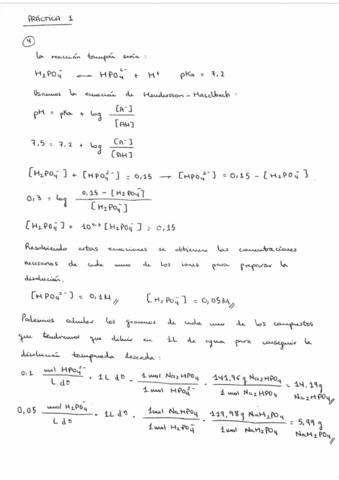 PRÁCTICA 1
4
La reacción tampón sería:
H₂PO₄⁻ ⟷ HPO₄²⁻ + H⁺ pKa = 7,2
Usamos la ecuación de Henderson-Hasselbach:
pH = pKa + log [A⁻]/[AH]
7,5 = 7,2 + log [A⁻]/[AH]
[H₂PO₄⁻] + [HPO₄²⁻] = 0,15 → [HPO₄²⁻] = 0,15 - [H₂PO₄⁻]
0,3 = log 0,15 - [H₂PO₄⁻]/[H₂PO₄⁻]
[H₂PO₄⁻] + 10⁰·³ [H₂PO₄⁻] = 0,15
Resolviendo estas ecuaciones se obtienen las concentraciones
necesarias de cada uno de los iones para preparar la
disolución.
[HPO₄²⁻] = 0,1M // [H₂PO₄⁻] = 0,05M //
Podemos calcular los gramos de cada uno de los compuestos
que tendremos que diluir en 1L de agua para conseguir la
disolución tamponada deseada:
0.1 mol HPO₄²⁻/L dⁿ · 1L dⁿ · 1 mol Na₂HPO₄/1 mol HPO₄²⁻ · 141,96 g Na₂HPO₄/1 mol Na₂HPO₄ = 14,19 g Na₂HPO₄ //
0,05 mol H₂PO₄⁻/L dⁿ · 1L dⁿ · 1 mol NaH₂PO₄/1 mol H₂PO₄⁻ · 119,98 g NaH₂PO₄/1 mol NaH₂PO₄ = 5,99 g NaH₂PO₄ //